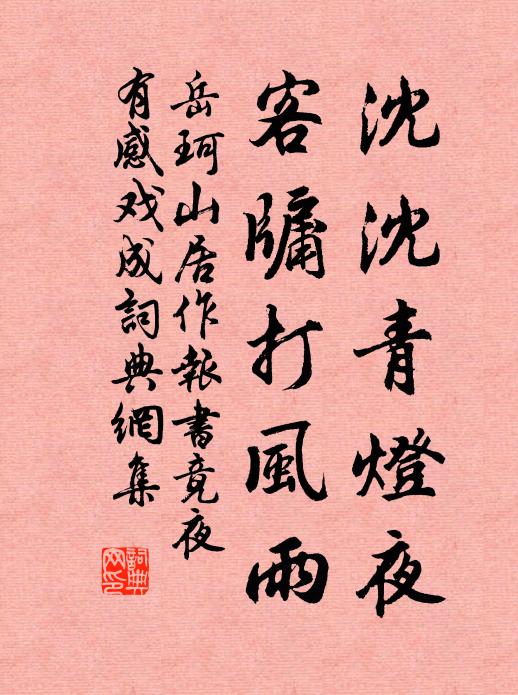 沈沈青燈夜
客牖打風雨
岳珂山居作報書竟夜
有感戏成詞典網集
詞典网印